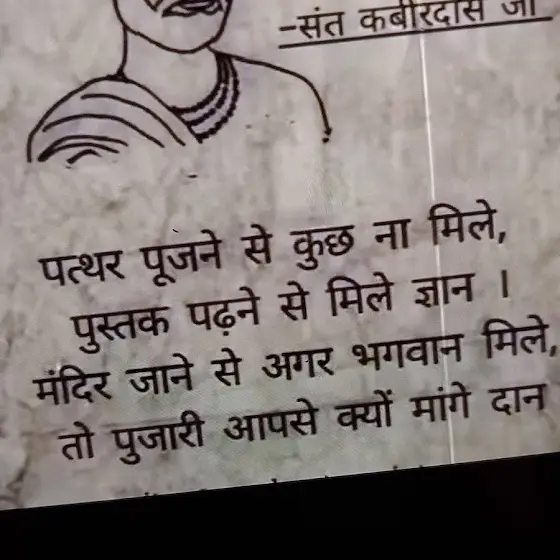 -संत कबीरदास जी
पत्थर पूजने से कुछ ना मिले,
पुस्तक पढ़ने से मिले ज्ञान ।
मंदिर जाने से अगर भगवान मिले,
तो पुजारी आपसे क्यों मांगे दान